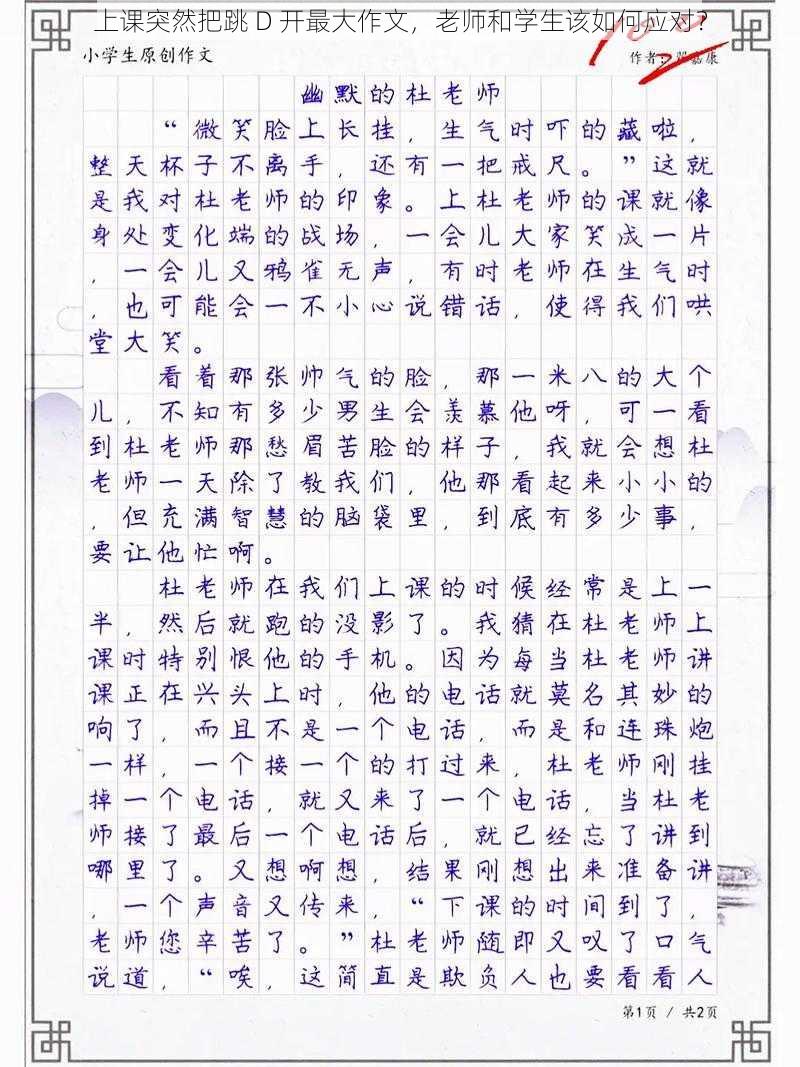 上课突然把跳 D 开最大作文，老师和学生该如何应对？
小学生原创作文
作者：嘉康
幽默的杜老师
“微笑脸上长挂，生气时吓的藏啦，
整天杯子不离手，还有一把戒尺。”这就
是我对杜老师的印象。上杜老师的课就像
身处变化端的战场，一会儿大家笑成一片
，一会儿又鸦雀无声，有时老师在生气时
，也可能会一不小心说错话，使得我们哄
堂大笑。
看着那张帅气的脸，那一米八的大个
儿，不知有多少男生会羡慕他呀，可一看
到杜老师那愁眉苦脸的样子，我就会想杜
老师一天除了教我们，他那看起来小小的
，但充满智慧的脑袋里，到底有多少事，
要让他忙啊。
杜老师在我们上课的时候经常是上一
半，然后就跑的没影了。我猜在杜老师上
课时特别恨他的手机。因为每当杜老师讲
课正在兴头上时，他的电话就莫名其妙的
响了，而且不是一个电话，而是和连珠炮
一样，一个接一个的打过来，杜老师刚挂
掉一个电话，就又来了一个电话，当杜老
师接了最后一个电话后，就已经忘了讲到
哪里了。又想啊想，结果刚想出来准备讲
，一个声音又传来，“下课的时间到了，
老师您辛苦了。”杜老师随即又叹了口气
说道，“唉，这简直是欺负人也要看看人
第1页 / 共2页